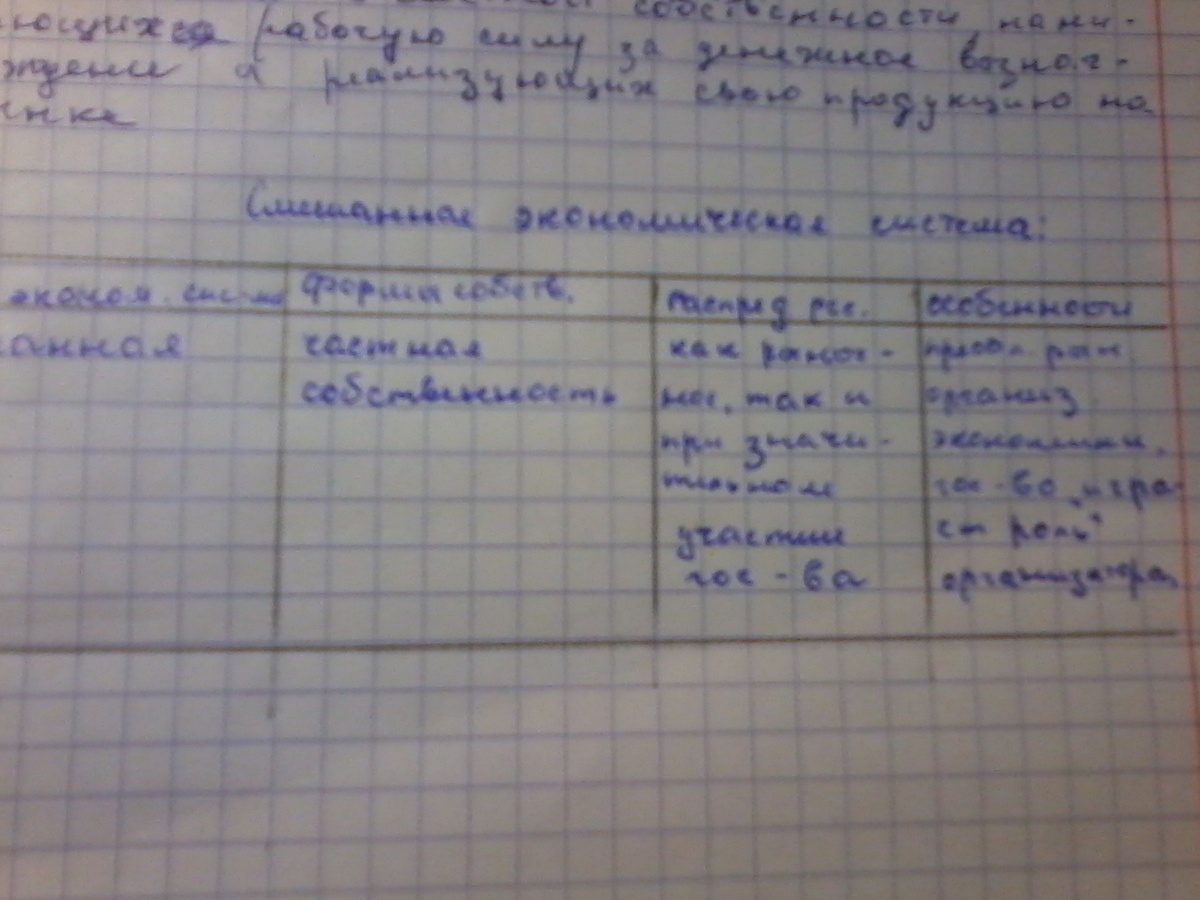 собственности, нани-
ющихся рабочую силу за денежное вознаг-
ждение и реализующих свою продукцию на
ынке
Смешанная экономическая система:
эконом. сис-ма форма собств. распред рес. особенности
анная частная как рыноч- преоб. рын.
собственность ное, так и организ.
при значи- экономики,
тельном гос-во „игра-
участии ет роль"
гос-ва организатора